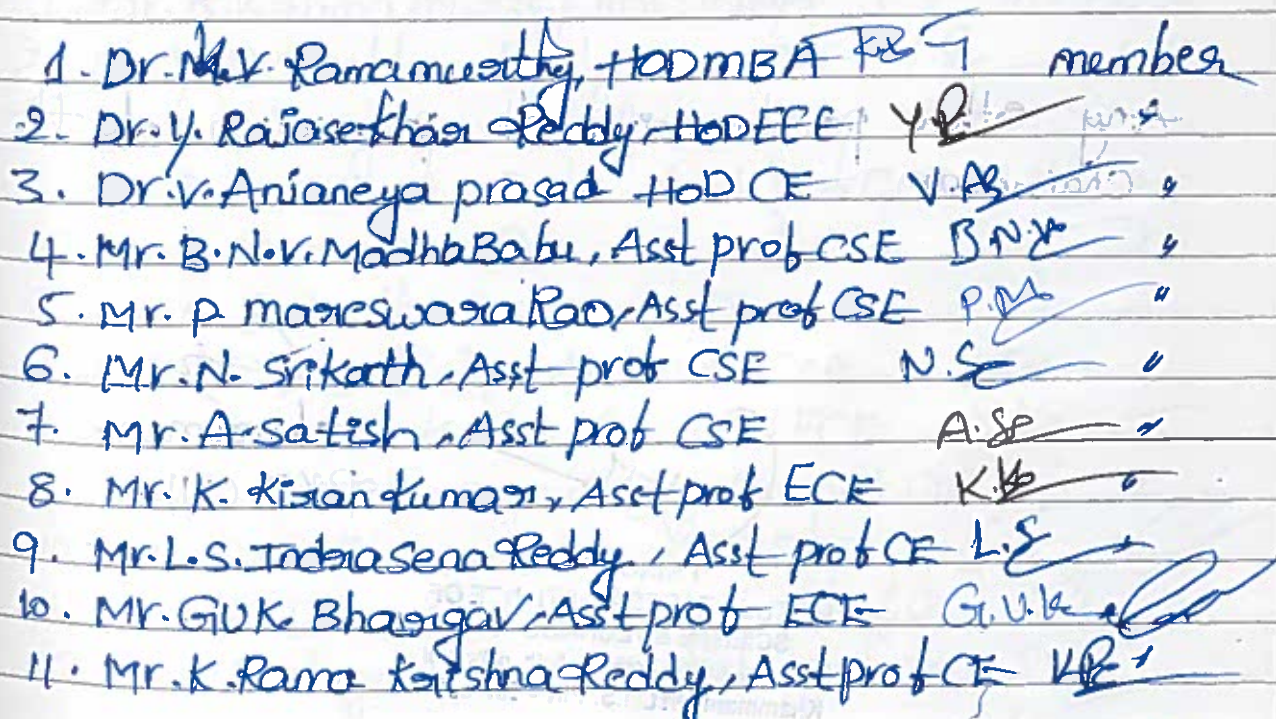 1. Dr. M.V. Ramamurthy, HOD MBA member
2. Dr. Y. Rajasekhar Reddy, HoD ECE Y R "
3. Dr. V. Anjaneya prasad HoD CE V.A "
4. Mr. B.N.V. MadhaBabu, Asst prof CSE B N.V "
5. Mr. P. mareswara Rao, Asst prof CSE P.M "
6. Mr. N. Srikath, Asst prof CSE N.S "
7. Mr. A. Satish, Asst prof CSE A.S "
8. Mr. K. Kiran Kumar, Asst prof ECE K.K "
9. Mr. L.S. IndraSena Reddy, Asst prof CE L.S "
10. Mr. GUK. Bhargav, Asst prof ECE G.U.K "
11. Mr. K. Rama Krishna Reddy, Asst prof CE KR "